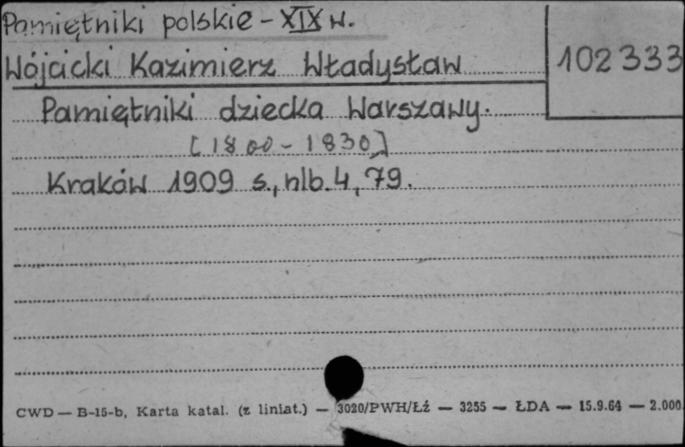 Pamiętniki polskie - XIX w.
Wójcicki Kazimierz Władysław
102333
Pamiętniki dziecka Warszawy.
[1800 - 1830]
Kraków 1909 s., nlb. 4, 79.
CWD — B-15-b, Karta katal. (z liniat.) — 3020/PWH/Łź — 3255 — ŁDA — 15.9.64 — 2.000.